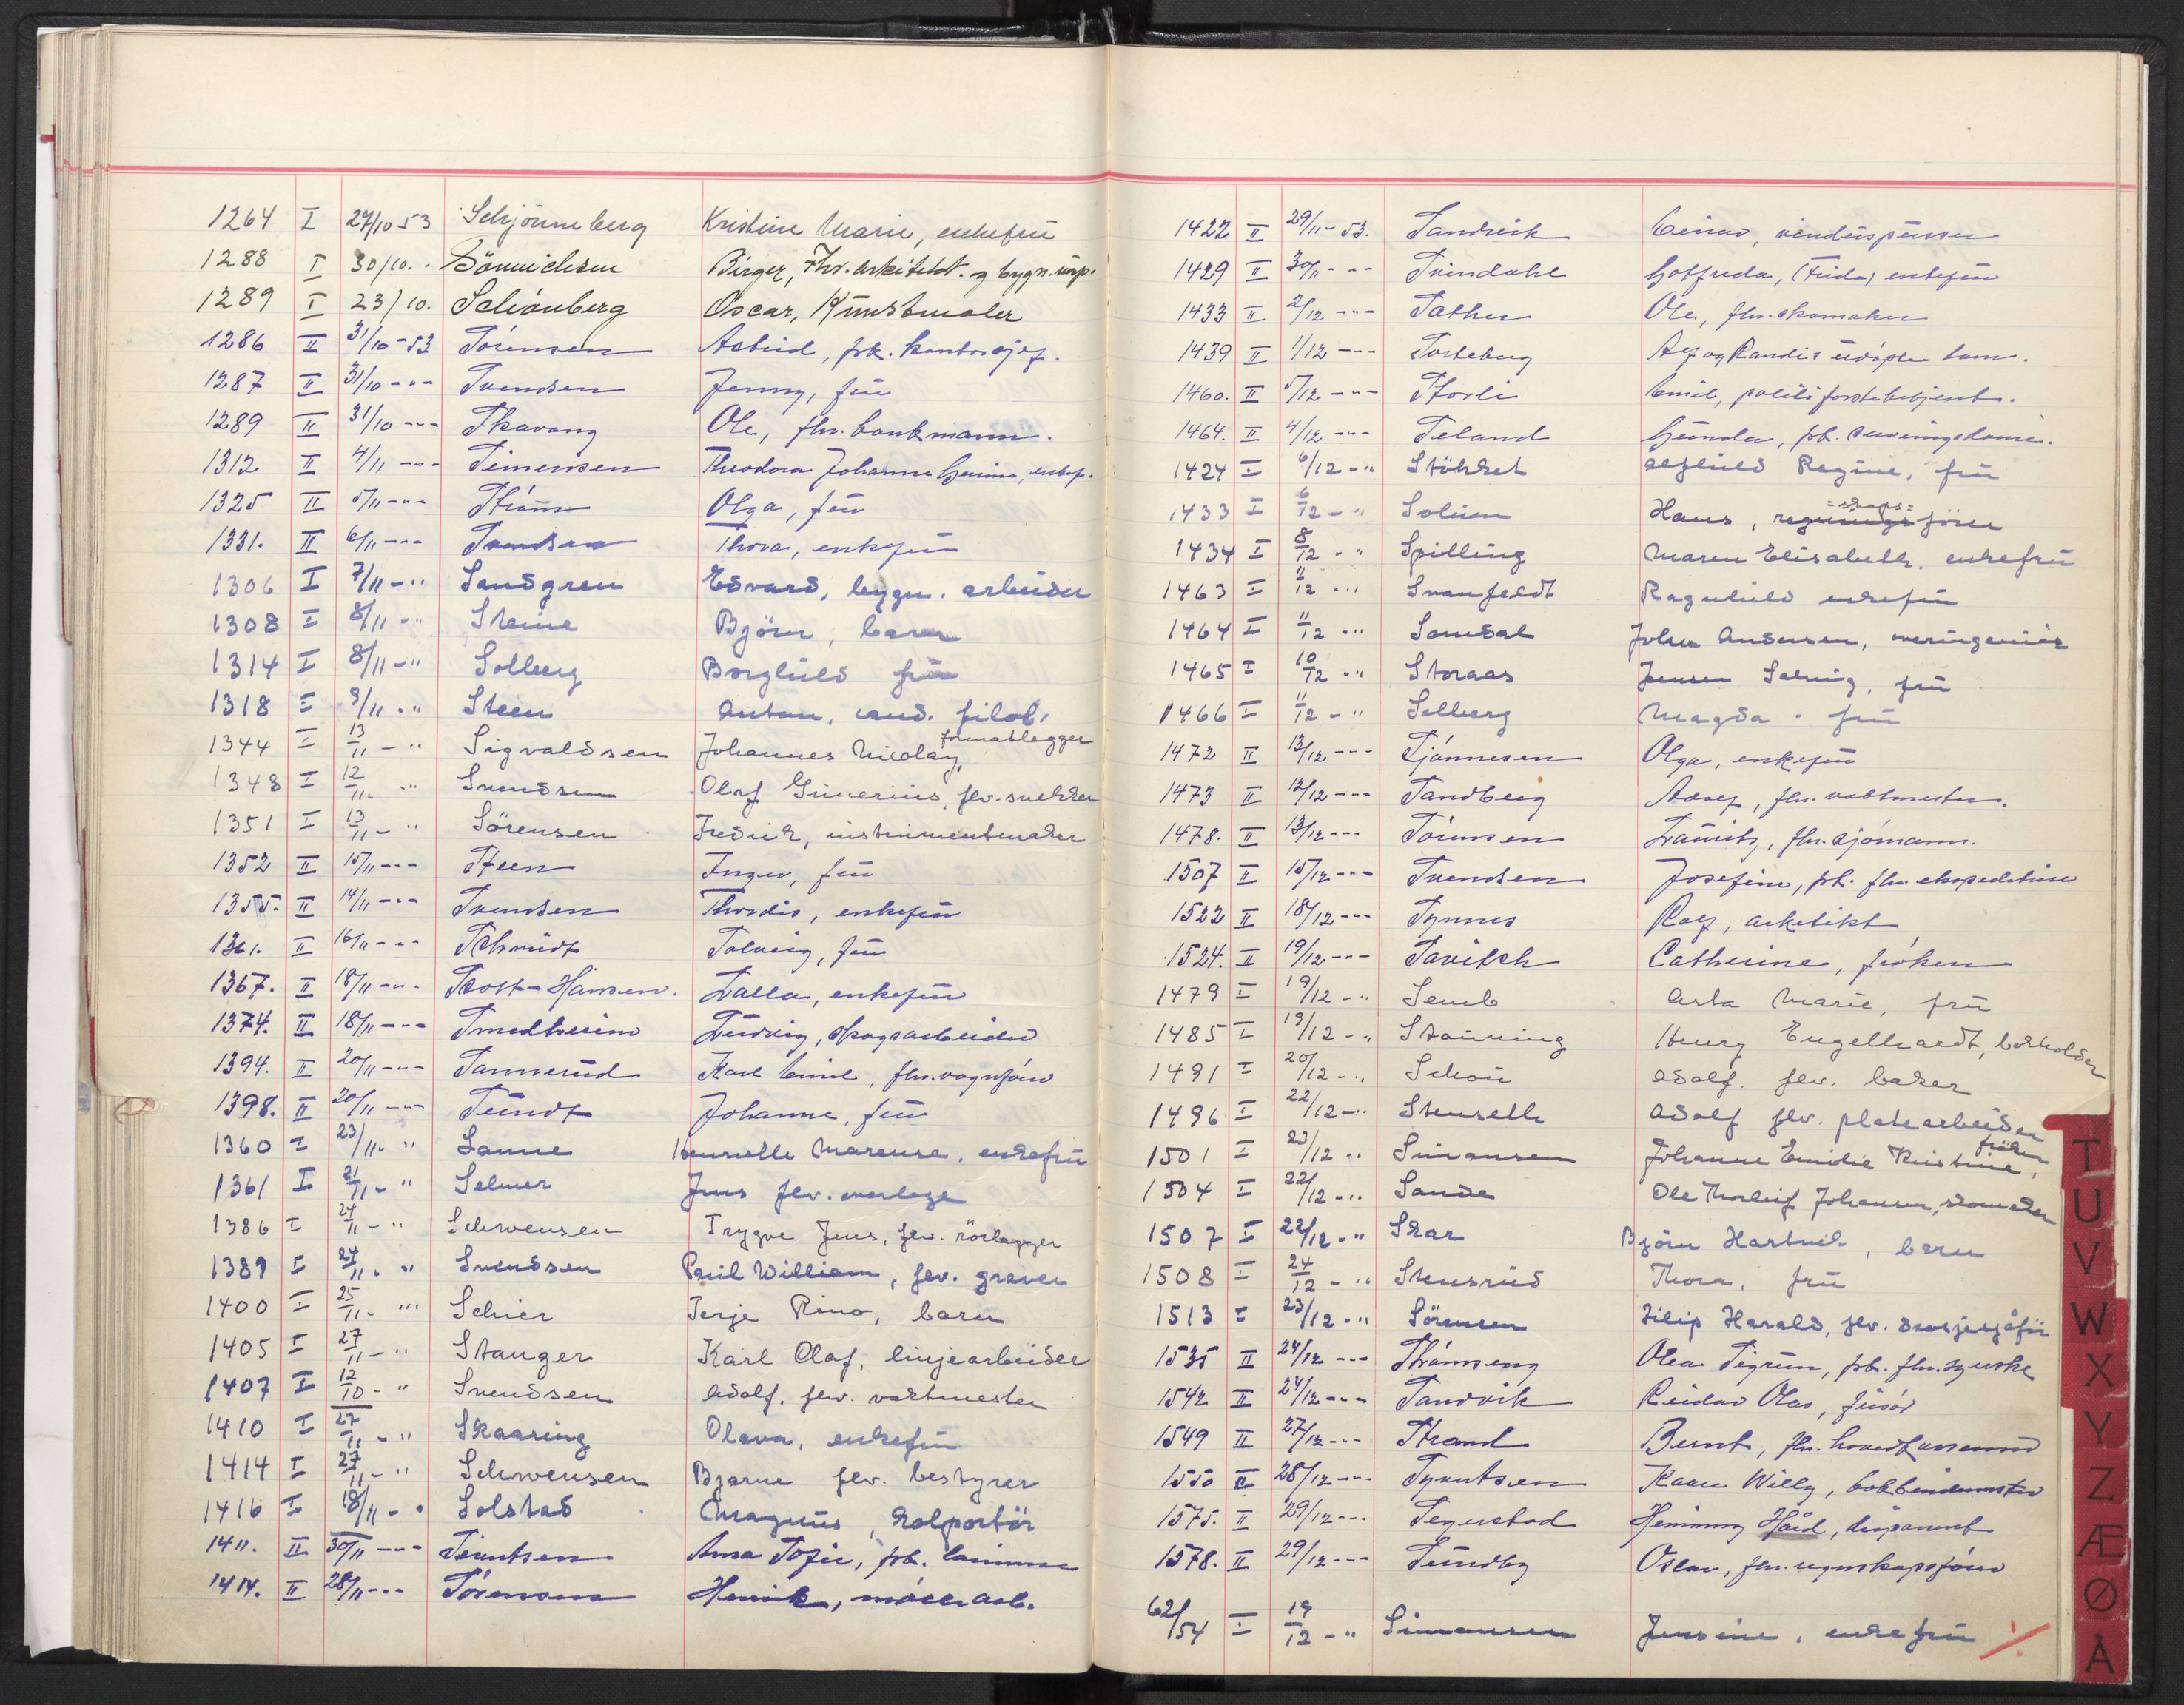 1264 I 27/10 53 Schjönneberg Kristine Marie, enkefrü
1288 I 30/10. - Sönnichsen Birger, Fhv. arkitekt. og bygn. insp.
1289 I 23/10. Schönberg Oscar, Künstmaler
1286 II 31/10 - 53 Sörensen Astrid, frk. kontorsjef.
1287 II 31/10 - " - Svendsen Jenny, frü
1289 II 31/10 - " - Skavang Ole, fhv. bankmann.
1312 II 4/11 - " - Simensen Theodora Johanne Gurine, enkef.
1325 II 5/11 - " - Ström Olga, frü
1331. II 6/11 - " - Svendsen Thora, enkefrü
1306 I 7/11 - " Sandgren Edvard, bygn. arbeider
1308 I 8/11 - " Steine Björn, barn
1314 I 8/11 - " Solberg Borghild frü
1318 I 9/11 - " Steen Anton, cand. filol.
1344 I 13/11 - " Sigvaldsen Johannes Nicolay,
1348 I 12/11 - " Svendsen Olaf Severinüs, flv. snekker
1351 I 13/11 - " Sörensen Fredrik, instrümentmaker
1352 II 15/11 - " - Steen Inger, frü
1355. II 14/11 - " - Svendsen Thordis, enkefrü
1361. II 16/11 - " - Schmidt Solveig, frü
1367. II 18/11 - " - Skott-Hansen. Lalla, enkefrü
1374. II 18/11 - " - Smedheim Lüdvig, skogsarbeider
1394. II 20/11 - " - Sannerüd Karl Emil, fhv. vognförer
1398. II 20/11 - " - Sündt Johanne, frü
1360 I 23/11 - " Sanne Henriette Marense, enkefrü
1361 I 21/11 - " Selmer Jens flv. overlege
1386 I 24/11 - " Schwensen Trygve Jens, flv. rörlegger
1389 I 24/11 - " Svendsen Paül William, flv. graver
1400 I 25/11 - " Schier Terje Rino, barn
1405 I 27/11 - " Stanger Karl Olaf, linjearbeider
1407 I 12/10 - " Svendsen Adolf, flv. vaktmester
1410 I 27/11 - " Skaaring Olava, enkefrü
1414 I 27/11 - " Schwensen Bjarne flv. bestyrer
1416 I 18/11 - " Solstad Magnüs, kolportör
1411. II 30/11 - " - Sivertsen Anna Sofie, frk. lærerinne
1414. II 28/11 - " - Sörensen Henrik, möllearb.
1422 II 29/11 - 53. Sandvik Einar, vindüspüsser
1429 II 30/11 - " - Svendahl Gotfreda, (Frida) enkefrü
1433 II 2/12 - " - Sather Ole, fhv. skomaker
1439 II 1/12 - " - Torteberg Alf og Randis üdöpte barn.
1460. II 5/12 - " - Storli Emil, politiførstebetjent.
1464. II 4/12 - " - Seland Günda, frk.
1424 I 6/12 - " Stökket Alfhild Regine, frü
1433 I 6/12 - " Solum Hans, regnskapsförer
1434 I 8/12 - " Spilling Maren Elisabeth, enkefrü
1463 I 11/12 - " Svanfeldt Ragnhild enkefrü
1464 I 11/12 - " Samdal Johan Andersen, overingeniör
1465 I 10/12 - " Storaas Jensen Solveig, frü
1466 I 11/12 - " Solberg Magda - frü
1472 II 13/12 - " - Sjönnesen Olga, enkefrü
1473 II 12/12 - " - Sandberg Adolf, fhv. vaktmester.
1478. II 13/12 - " - Sörensen Laüritz, fhv. sjömann.
1507 II 15/12 - " - Svendsen Josefine, frk. fhv. ekspeditrise
1522 II 18/12 - " - Synnes Rolf, arkitekt
1524. II 19/12 - " - Savitch Catherine, fröken
1479 I 19/12 - " Semb Asta Marie, frü
1485 I 19/12 - " Stauning Henry Engelhardt, bokholder
1491 I 20/12 - " Schou Adolf. flv. baker
1496 I 22/12 - " Stenseth Adolf flv. platearbeider
1501 I 23/12 - " Simonsen Johanne Emilie Kristine, fröken
1504 I 22/12 - " Sande Ole Thorleif Johansen, skomaker
1507 I 22/12 - " Skar Björn Hartvik, barn
1508 I 24/12 - " Stensrüd Thora, frü
1513 I 23/12 - " Sörensen Filip Harald, flv. drosjesjåför
1535 II 24/12 - " - Strömseng Olea Sigrün, frk. fhv. syerske
1542 II 24/12 - " - Sandvik Reidar Olav, frisör
1549 II 27/12 - " - Strand Bernt, fhv. hovedkasserer
1550 II 28/12 - " - Syvertsen Kaare Willy, bokbindermester
1575. II 29/12 - " - Segerstad Henning Hård, disponent
1578. II 29/12 - " - Sündby Oscar, fhv. regnskapsförer
62/54 I 19/12 - " Simonsen Jensine, enkefrü
T
U
V
W
X
Y
Z
Æ
Ø
Å